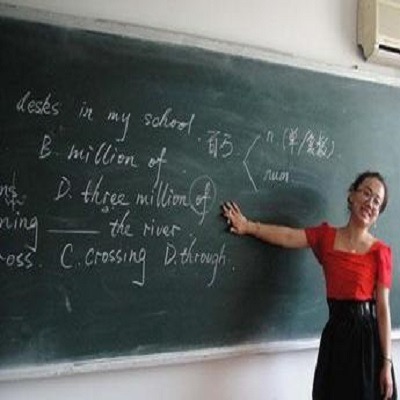 desks in my school.
B. million of
百万
n (单/复数).
num.
D. three million of
ning ____ the river.
oss. C. crossing D. through.